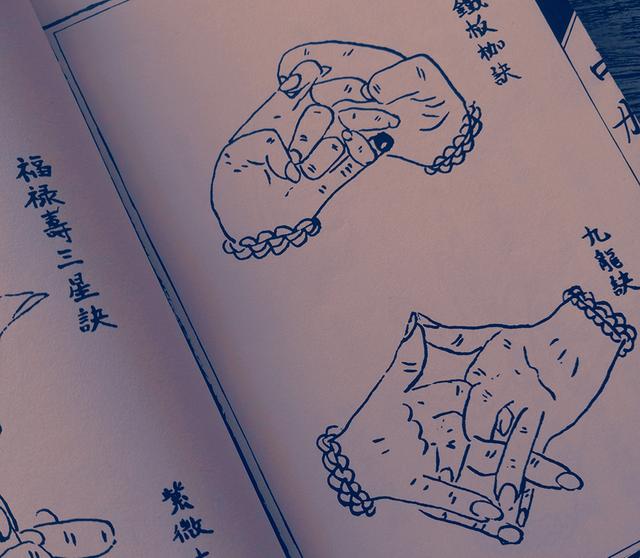 鐵板枷訣
九龍訣
福祿壽三星訣
紫微